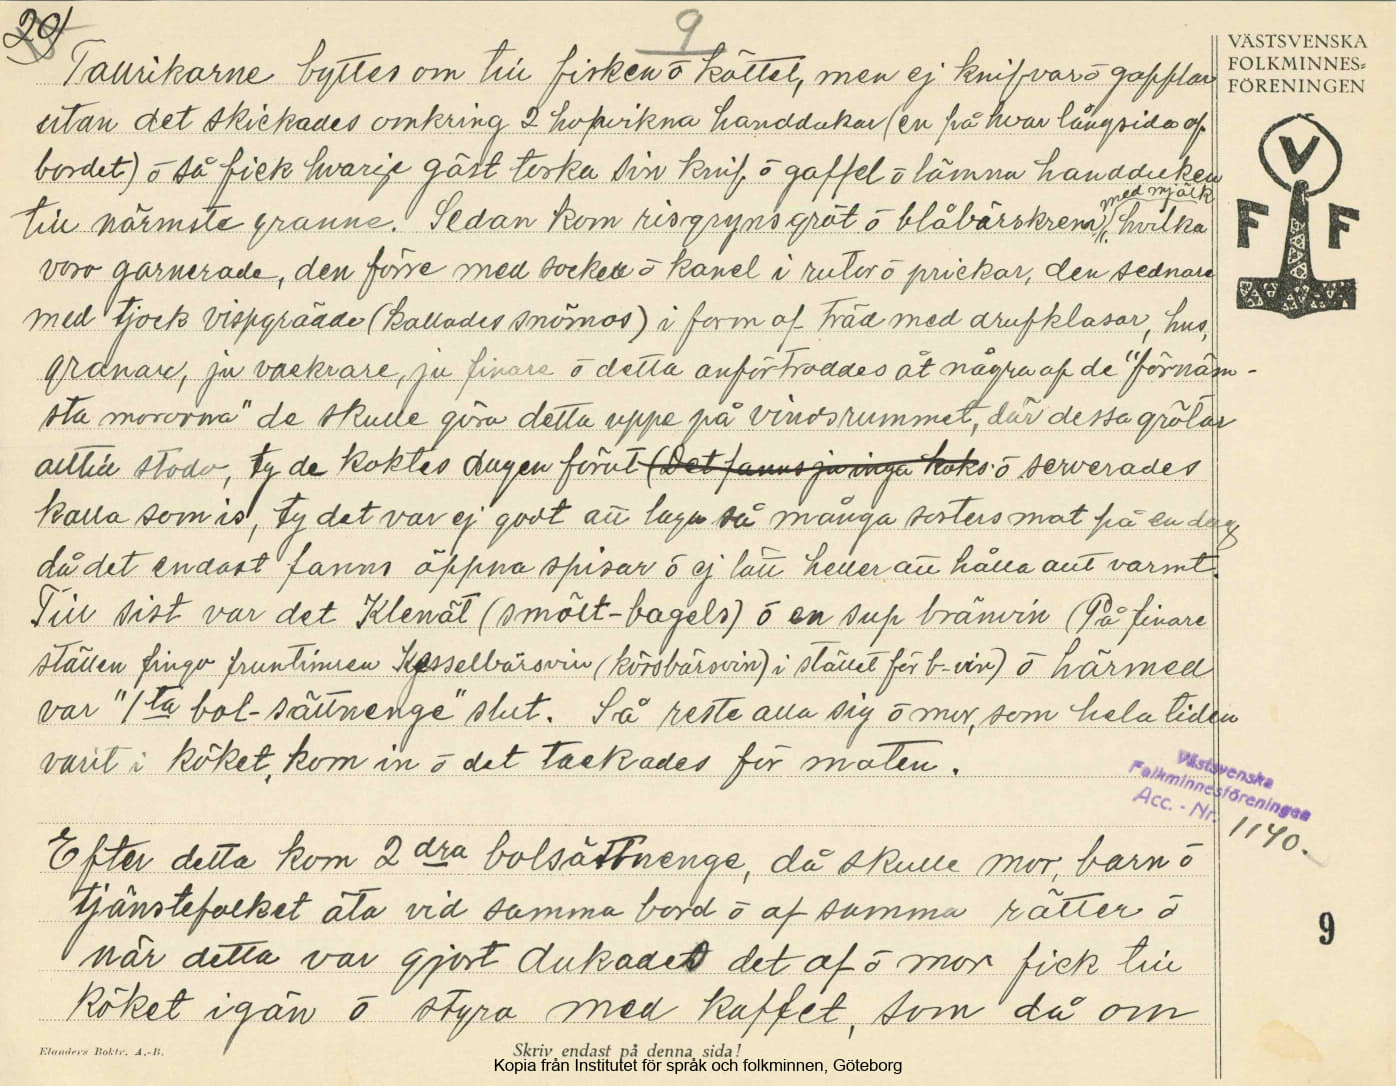 20/
9
VÄSTSVENSKA
FOLKMINNES=
FÖRENINGEN
V
F F
Tallrikarne byttes om till fisken ō köttet, men ej knifvar ō gafflar
utan det skickades omkring 2 hopvikna handdukar (en på hvar långsida af
bordet) ō så fick hvarje gäst torka sin knif ō gaffel ō lämna handduken
till närmste granne. Sedan kom risgrynsgröt ō blåbärskrem, hvilka
med mjölk
voro garnerade, den förre med socker ō kanel i rutor ō prickar, den sednare
med tjock vispgrädde (kallades snömos) i form af träd med drufklasar, hus,
granar, ju vackrare, ju finare ō detta anförtroddes åt några af de "förnäm-
sta mororna" de skulle göra detta uppe på vindsrummet, där dessa grötar
alltid stodo, ty de koktes dagen förut (Det fanns ju inga koks. ō serverades
kalla som is, ty det var ej godt att laga så många sorters mat på en dag
då det endast fanns öppna spisar ō ej lätt heller att hålla allt varmt.
Till sist var det Klenät (smält-bagels) ō en sup bränvin (På finare
ställen fingo fruntimren Kesselbärsvin (körsbärsvin) i stället för b-vin) ō härmed
var "1ta bol-sättnenge" slut. Så reste alla sig ō mor, som hela tiden
varit i köket, kom in ō det tackades för maten.
Västsvenska
Folkminnesföreningen
Acc. - Nr. 1140.
Efter detta kom 2dra bolsättnenge, då skulle mor, barn ō
tjänstefolket äta vid samma bord ō af samma rätter ō
9
när detta var gjort dukades det af ō mor fick till
köket igän ō styra med kaffet, som då om
Elanders Boktr. A.-B.
Skriv endast på denna sida!
Kopia från Institutet för språk och folkminnen, Göteborg